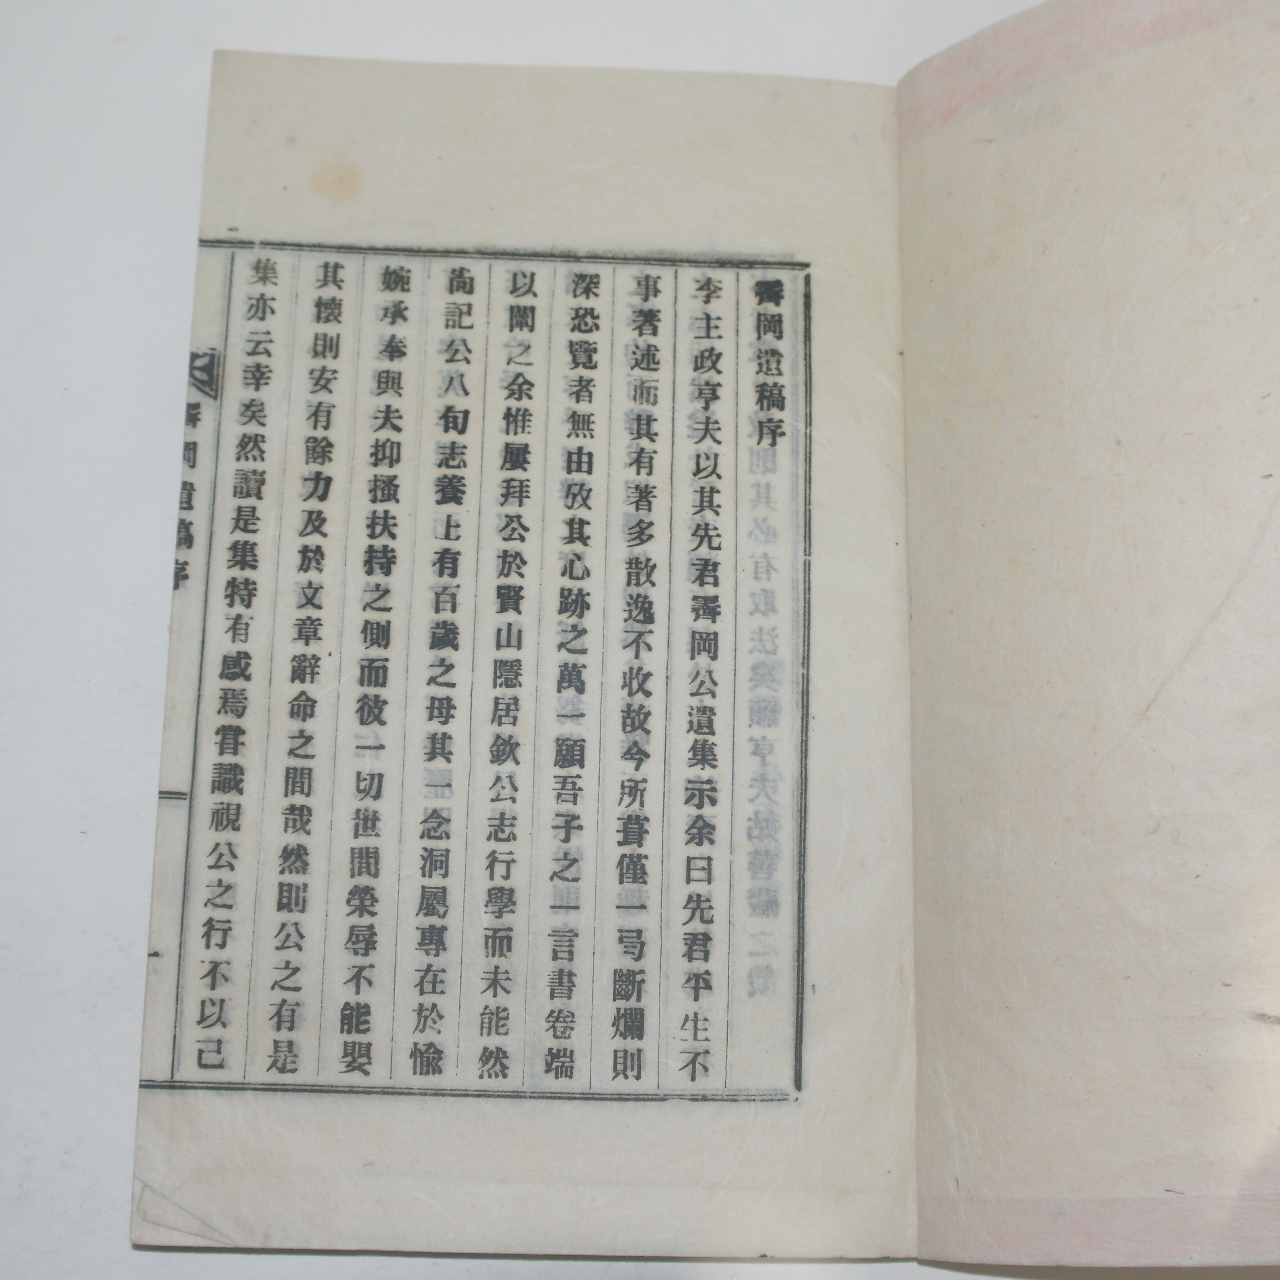 霽岡遺稿序
李主政亨夫以其先君霽岡公遺集示余曰先君平生不
事著述而其有著多散逸不收故今所葺僅一弓斷爛則
深恐覽者無由攷其心跡之萬一願吾子之一言書卷端
以闡之余惟屢拜公於賢山隱居欽公志行學而未能然
尙記公八旬志養上有百歲之母其一念洞屬專在於愉
婉承奉與夫抑搔扶持之側而彼一切世間榮辱不能嬰
其懷則安有餘力及於文章辭命之間哉然則公之有是
集亦云幸矣然讀是集特有感焉甞識視公之行不以己
霽岡遺稿序
一